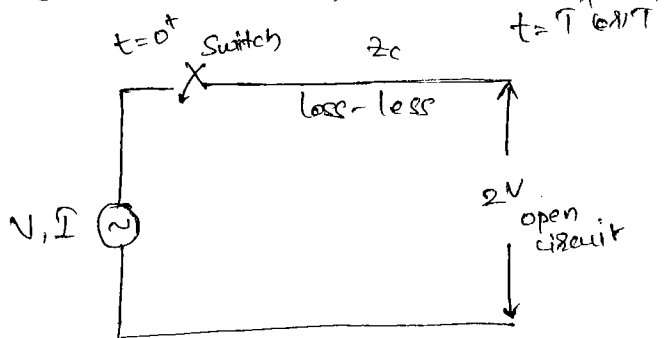 t=0⁺ Switch
Zc
t= T⁺ (or) T
loss-less
V, I
2V
open
circuit